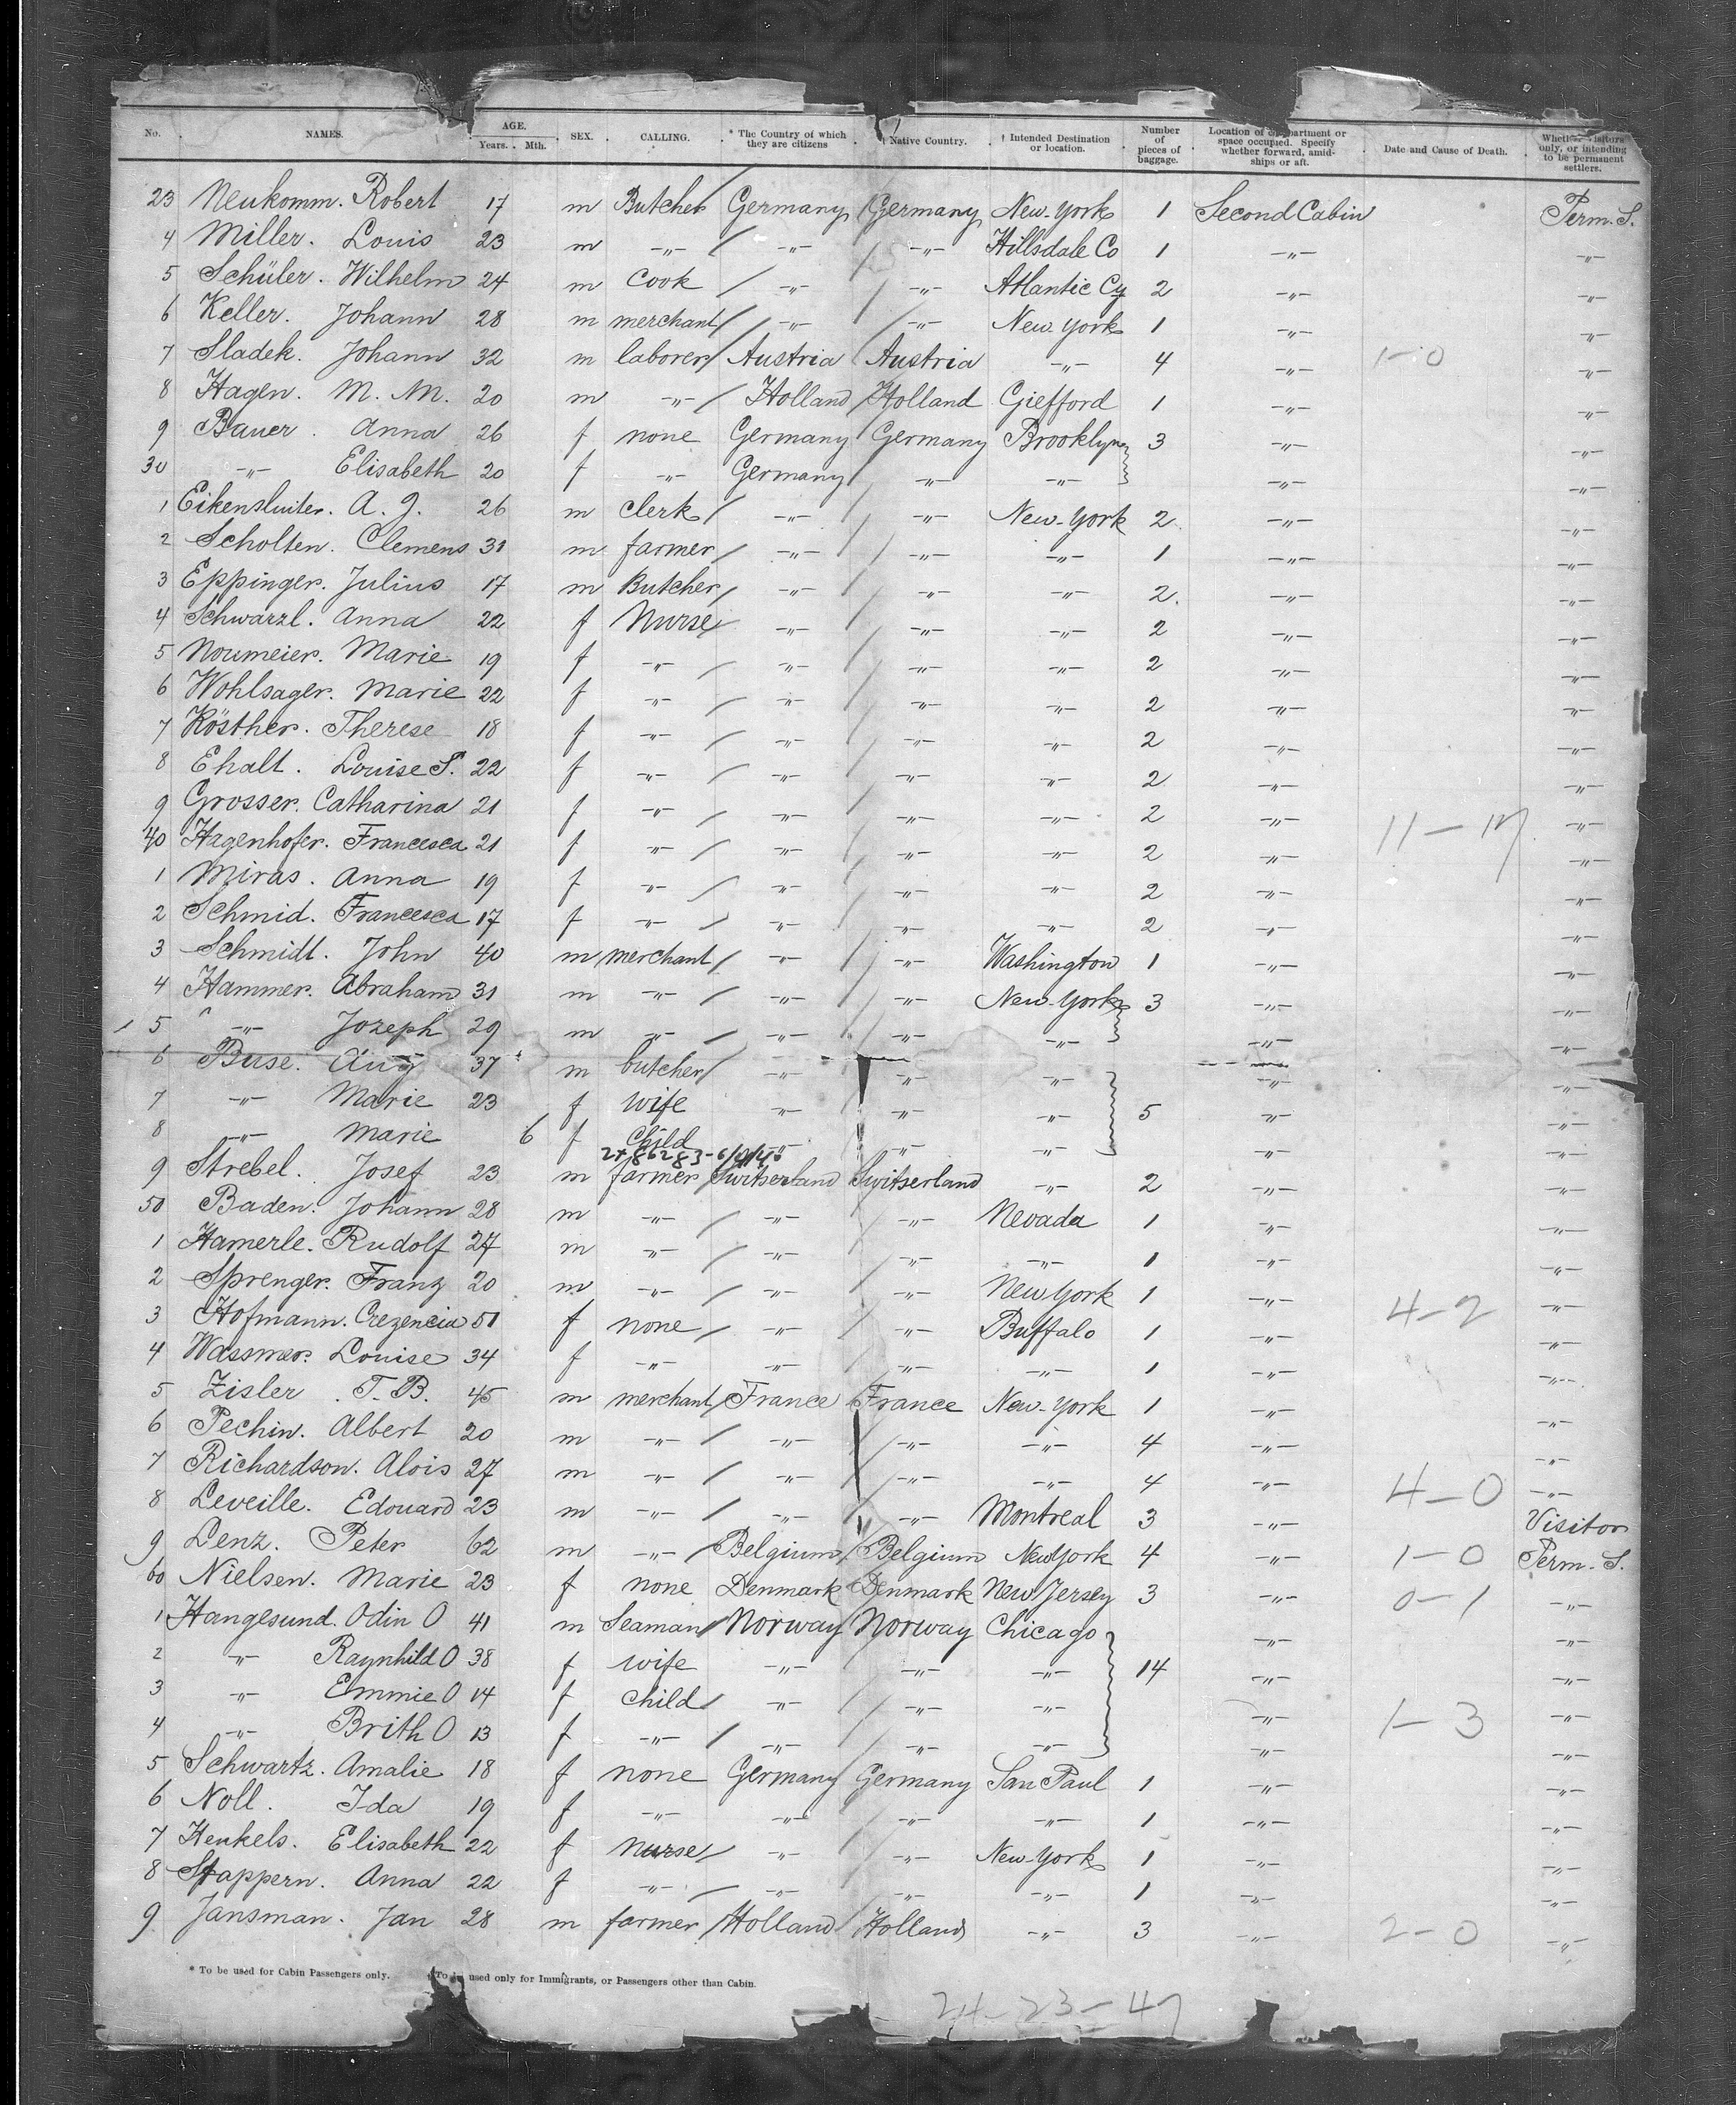 No. NAMES. AGE. Years. Mth. SEX. CALLING. * The Country of which they are citizens † Native Country. † Intended Destination or location. Number of pieces of baggage. Location of compartment or space occupied. Specify whether forward, amidships or aft. Date and Cause of Death. Whether visitors only, or intending to be permanent settlers.
23 Neukomm. Robert 17 m Butcher Germany Germany New-York 1 Second Cabin Perm. S.
4 Miller. Louis 23 m -"- -"- -"- Hillsdale Co 1 -"- -"-
5 Schüler. Wilhelm 24 m Cook -"- -"- Atlantic Cy 2 -"- -"-
6 Keller. Johann 28 m merchant -"- -"- New-York 1 -"- -"-
7 Sladek. Johann 32 m laborer Austria Austria -"- 4 -"- 1-0 -"-
8 Hagen. M. M. 20 m -"- Holland Holland Giefford 1 -"- -"-
9 Bauer. Anna 26 f none Germany Germany Brooklyn 3 -"- -"-
30 -"- Elisabeth 20 f -"- Germany -"- -"- -"- -"-
1 Eikensluiter. A. J. 26 m clerk -"- -"- New-York 2 -"- -"-
2 Scholten. Clemens 31 m farmer -"- -"- -"- 1 -"- -"-
3 Eppinger. Julius 17 m Butcher -"- -"- -"- 2. -"- -"-
4 Schwarzl. Anna 22 f Nurse -"- -"- -"- 2 -"- -"-
5 Noumeier. Marie 19 f -"- -"- -"- -"- 2 -"- -"-
6 Wohlsager. Marie 22 f -"- -"- -"- -"- 2 -"- -"-
7 Kösther. Therese 18 f -"- -"- -"- -"- 2 -"- -"-
8 Ehalt. Louise S. 22 f -"- -"- -"- -"- 2 -"- -"-
9 Grosser. Catharina 21 f -"- -"- -"- -"- 2 -"- 11-17 -"-
40 Hagenhofer. Francesca 21 f -"- -"- -"- -"- 2 -"- -"-
1 Miras. Anna 19 f -"- -"- -"- -"- 2 -"- -"-
2 Schmid. Francesca 17 f -"- -"- -"- -"- 2 -"- -"-
3 Schmidt. John 40 m merchant -"- -"- Washington 1 -"- -"-
4 Hammer. Abraham 31 m -"- -"- -"- New-York 3 -"- -"-
5 -"- Jozeph 29 m -"- -"- -"- -"- -"- -"-
6 Buse. Aug 37 m butcher -"- -"- -"- -"- -"-
7 -"- Marie 23 f wife -"- -"- -"- 5 -"- -"-
8 -"- Marie 6 f Child -"- -"- -"- -"- -"-
9 Strebel. Josef 23 m farmer Switserland Switserland -"- 2 -"- -"-
50 Baden. Johann 28 m -"- -"- -"- Nevada 1 -"- -"-
1 Hamerle. Rudolf 27 m -"- -"- -"- -"- 1 -"- -"-
2 Sprenger. Franz 20 m -"- -"- -"- New York 1 -"- 4-2 -"-
3 Hofmann. Crezencia 51 f none -"- -"- Buffalo 1 -"- -"-
4 Wassmer. Louise 34 f -"- -"- -"- -"- 1 -"- -"-
5 Zisler. T. B. 45 m merchant France France New-York 1 -"- -"-
6 Pechin. Albert 20 m -"- -"- -"- -"- 4 -"- -"-
7 Richardson. Alois 27 m -"- -"- -"- -"- 4 -"- 4-0 -"-
8 Leveille. Edouard 23 m -"- -"- -"- Montreal 3 -"- Visitor
9 Lenz. Peter 62 m -"- Belgium Belgium New York 4 -"- 1-0 Perm. S.
60 Nielsen. Marie 23 f none Denmark Denmark New Jersey 3 -"- 0-1 -"-
1 Hangesund. Odin O 41 m Seaman Norway Norway Chicago -"- -"-
2 -"- Raynhild O 38 f wife -"- -"- -"- 14 -"- -"-
3 -"- Emmie O 14 f child -"- -"- -"- -"- 1-3 -"-
4 -"- Brith O 13 f -"- -"- -"- -"- -"- -"-
5 Schwartz. Amalie 18 f none Germany Germany San Paul 1 -"- -"-
6 Noll. Ida 19 f -"- -"- -"- -"- 1 -"- -"-
7 Henkels. Elisabeth 22 f nurse -"- -"- New-York 1 -"- -"-
8 Stappern. Anna 22 f -"- -"- -"- -"- 1 -"- -"-
9 Jansman. Jan 28 m farmer Holland Holland -"- 3 -"- 2-0 -"-
* To be used for Cabin Passengers only. † To be used only for Immigrants, or Passengers other than Cabin.
24-23-47